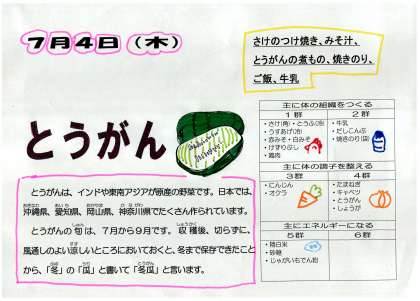 7月4日（木）
さけのつけ焼き、みそ汁、
とうがんの煮もの、焼きのり、
ご飯、牛乳
とうがん
とうがんは、インドや東南アジアが原産の野菜です。日本では、
沖縄県、愛知県、岡山県、神奈川県でたくさん作られています。
とうがんの旬は、7月から9月です。収穫後、切らずに、
風通しのよい涼しいところにおいておくと、冬まで保存できたこと
から、「冬」の「瓜」と書いて「冬瓜」と言います。
主に体の組織をつくる
1群 2群
・さけ(角)・とうふ(冷) ・牛乳
・うすあげ(冷) ・だしこんぶ
・赤みそ・白みそ ・焼きのり(袋)
・けずりぶし
・鶏肉
主に体の調子を整える
3群 4群
・にんじん ・たまねぎ
・オクラ ・キャベツ
・とうがん
・しょうが
主にエネルギーになる
5群 6群
・精白米
・砂糖
・じゃがいもでん粉